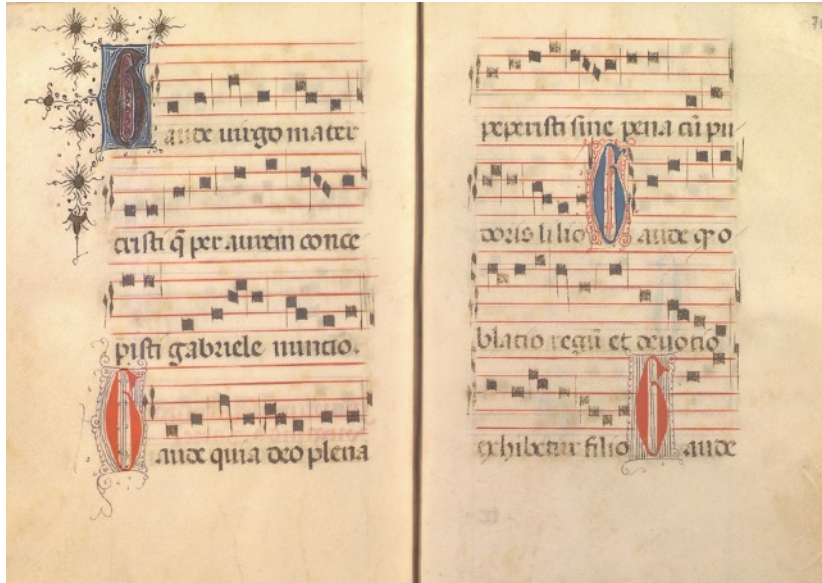 Gaude virgo mater
cristi q̃ per aurem conce
pisti gabriele nuncio.
Gaude quia deo plena
peperisti sine pena cũ pu
doris lilio Gaude q̃ o
blacio regũ et devotio
exhibetur filio Gaude